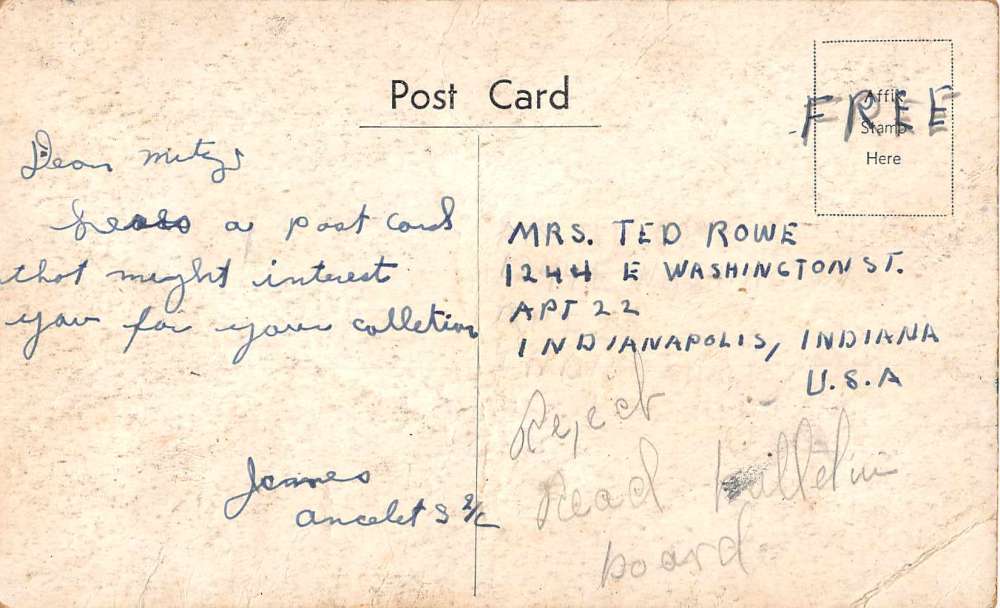 Post Card
FREE
Affix
Stamp
Here
Dear Mitzi
heres a post card
that might interest
you for your colletion
James
Ancelet S 2/C
MRS. TED ROWE
1244 E WASHINGTON ST.
APT 22
INDIANAPOLIS, INDIANA
U.S.A
Reject
Read bulletin
board